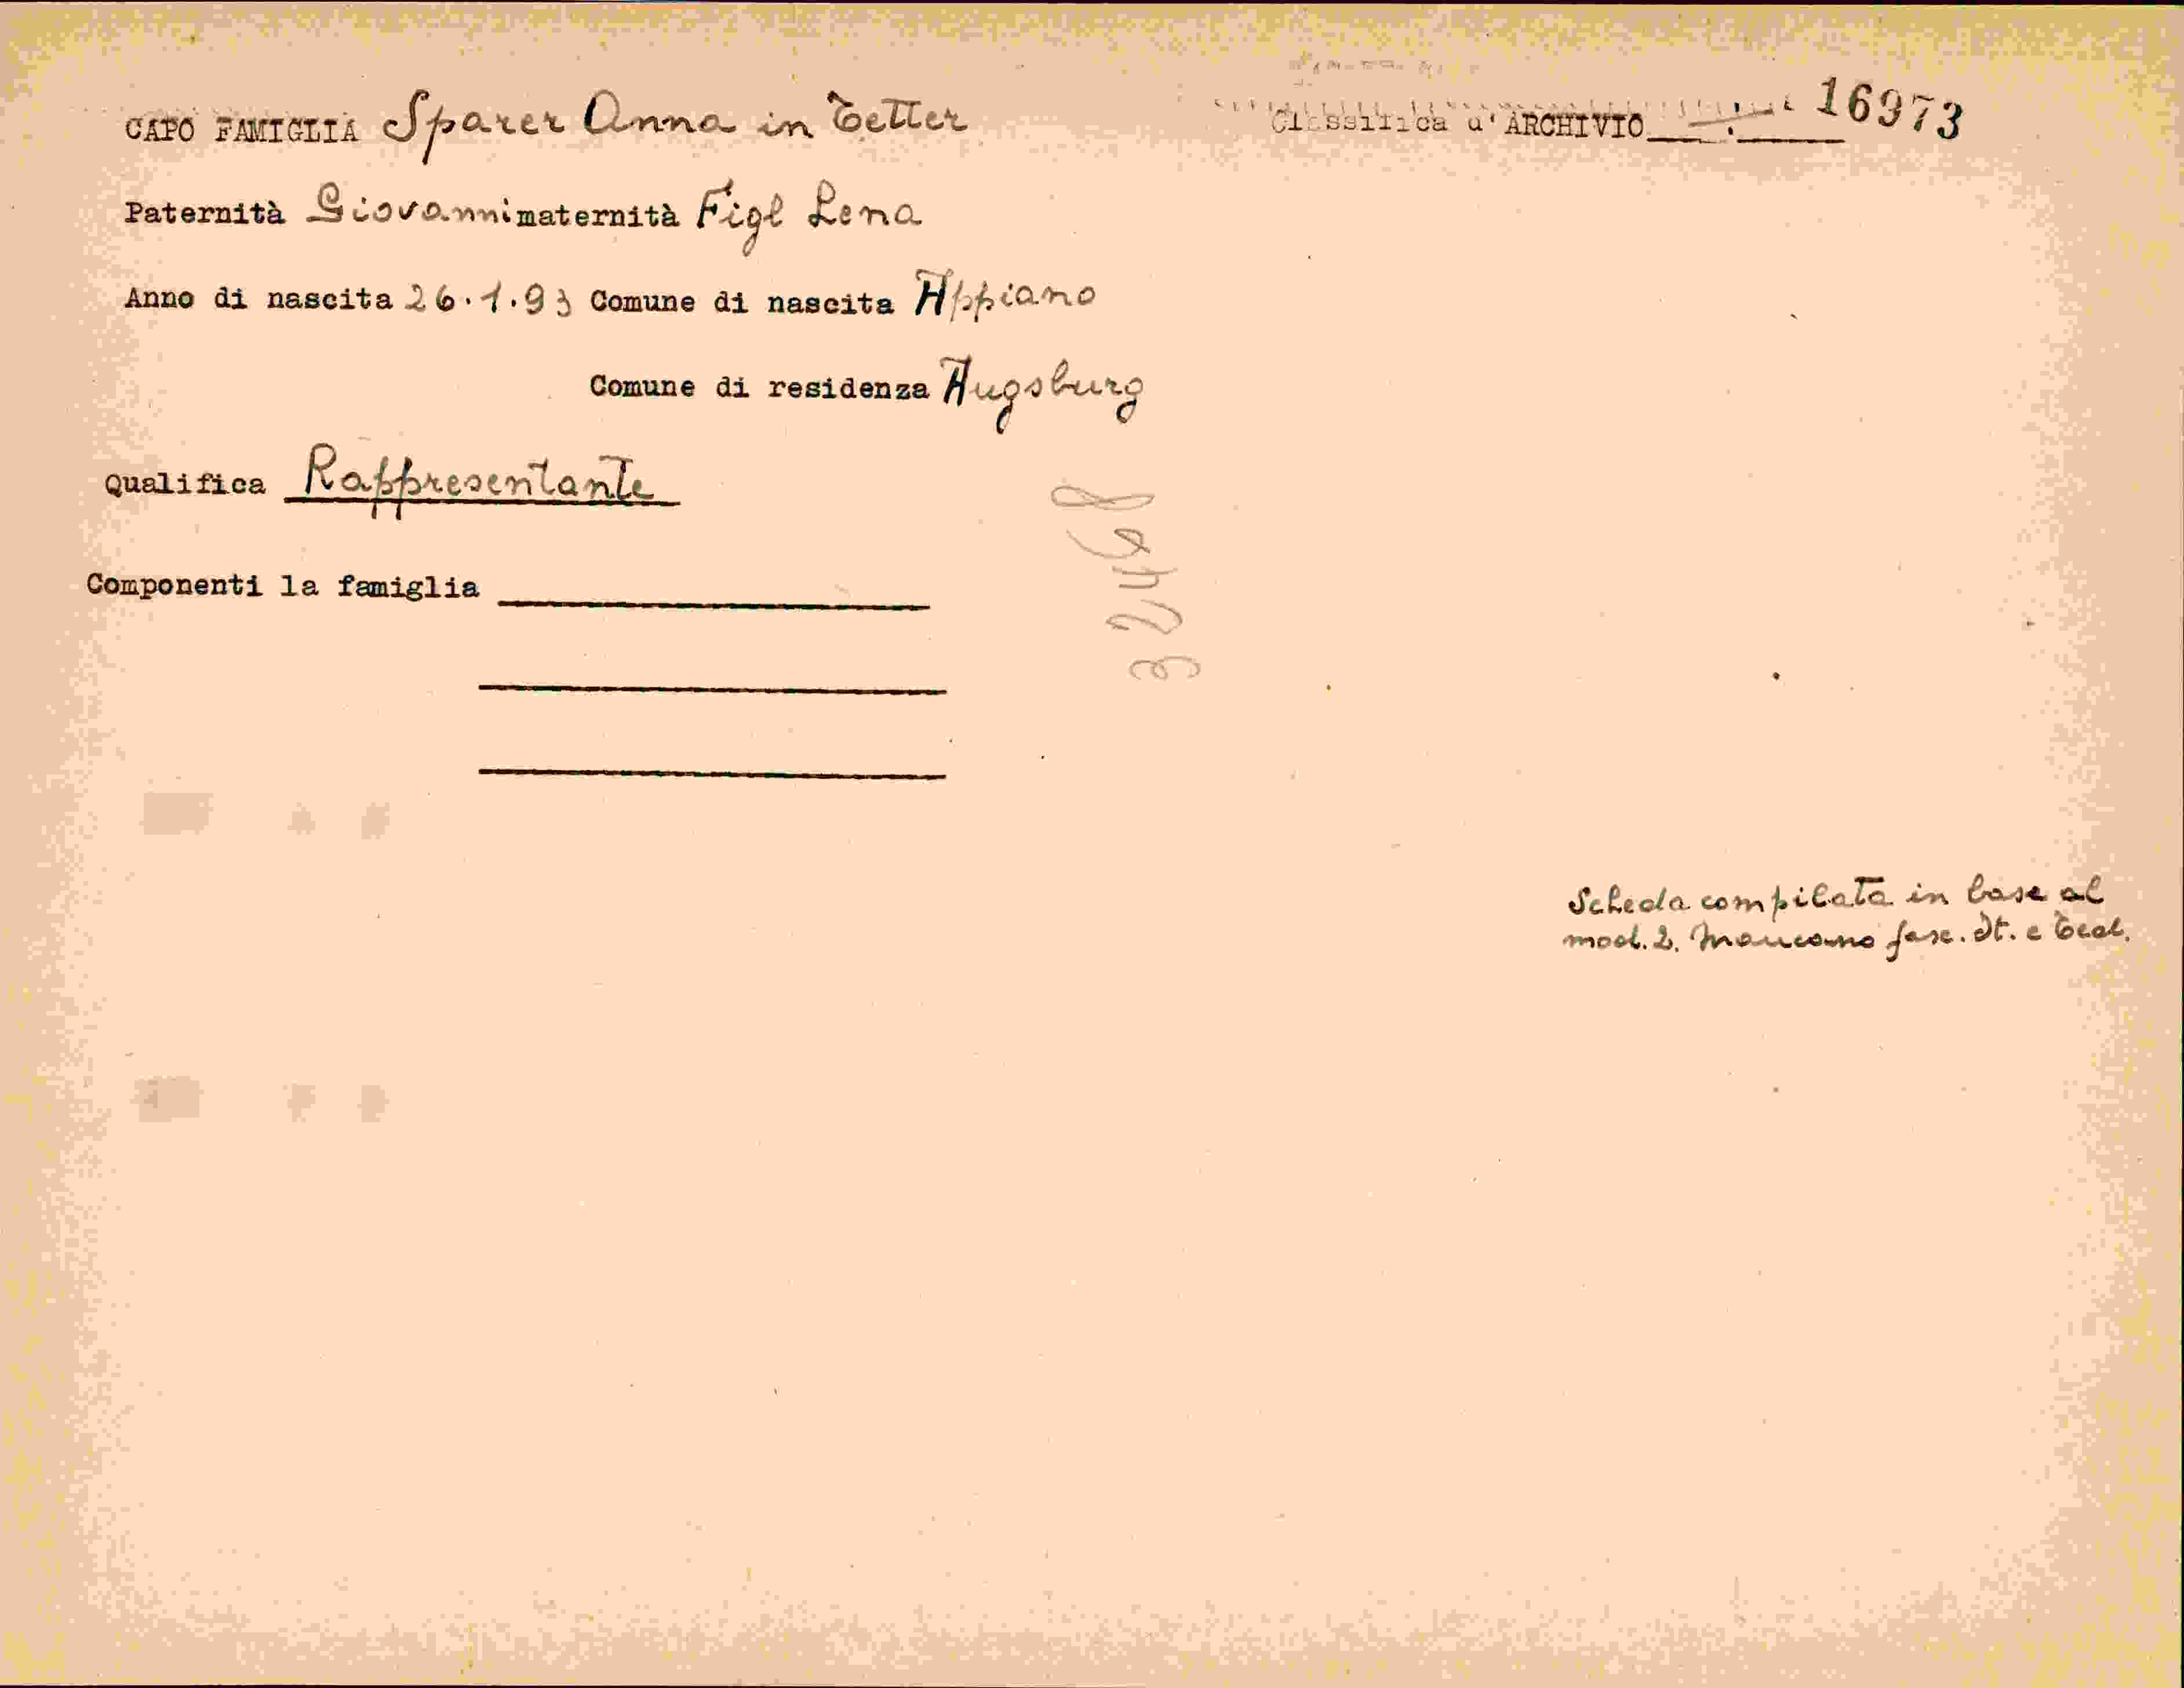 CAPO FAMIGLIA Sparer Anna in Tetter
Classifica d'ARCHIVIO 16973
Paternità Giovanni maternità Figl Lena
Anno di nascita 26.1.93 Comune di nascita Appiano
Comune di residenza Augsburg
Qualifica Rappresentante
Componenti la famiglia
Scheda compilata in base al
mod. 2. Mancano fasc. It. e Ted.